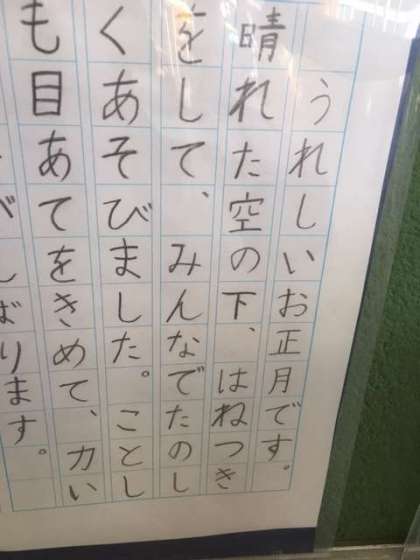 うれしいお正月です。
晴れた空の下、はねつき
をして、みんなでたのし
くあそびました。ことし
も目あてをきめて、力い
がんばります。